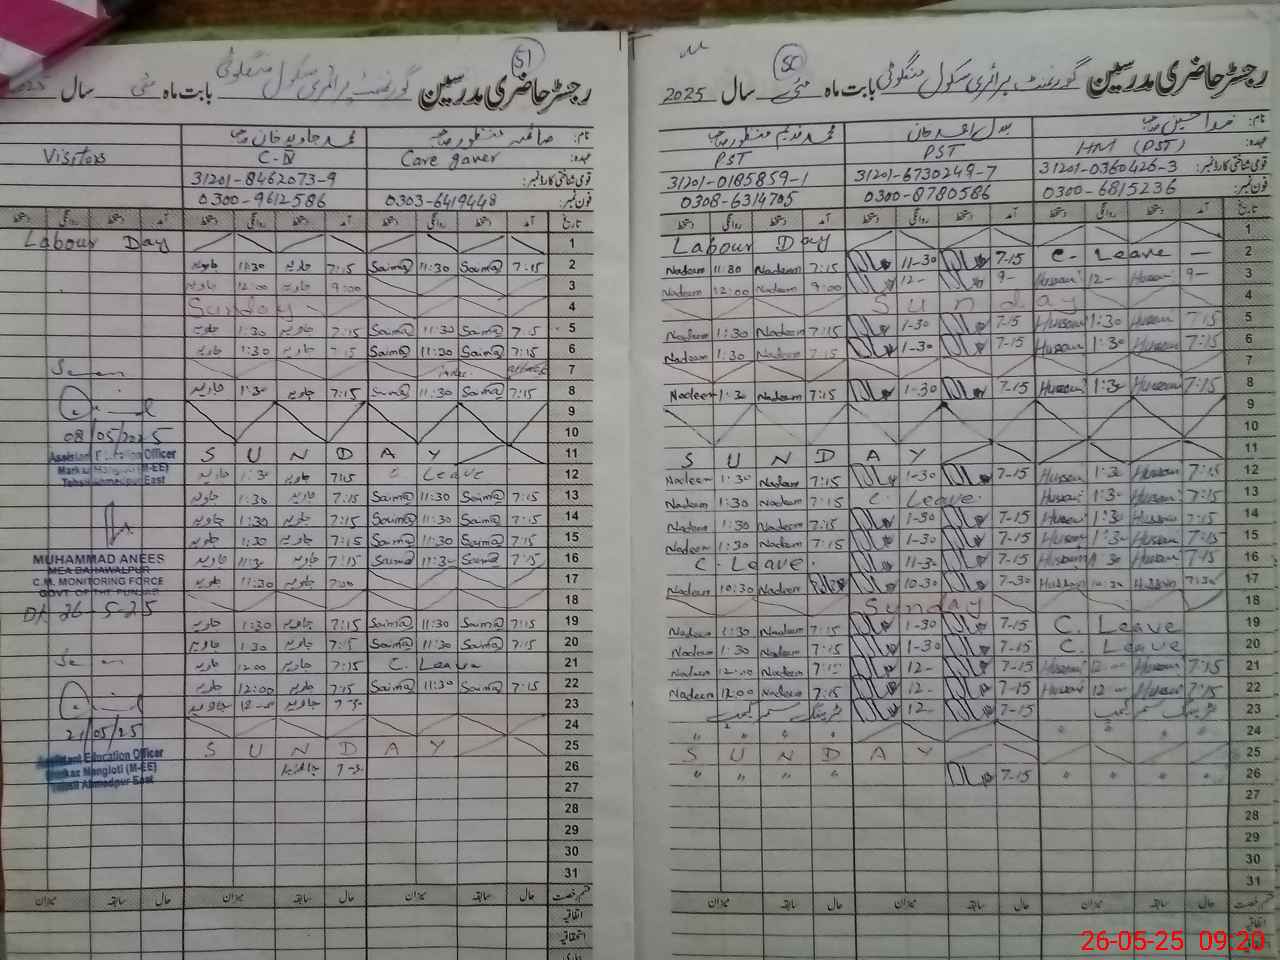 51
رجسٹر حاضری مدرسین گورنمنٹ پرائمری سکول منگلوٹی بابت ماہ مئی سال 2025
نام: صائمہ منظور صاحبہ محمد جاوید خان صاحب
عہدہ: Care gaver C-IV Visitors
قومی شناختی کارڈ نمبر: 31201-8462073-9
فون نمبر: 0303-6419448 0300-9612586
تاریخ آمد دستخط روانگی دستخط آمد دستخط روانگی دستخط آمد دستخط روانگی دستخط
1 Labour Day
2 7:15 Saima 11:30 Saima 7:15 جاوید 11:30 جاوید
3 9:00 جاوید 12:00 جاوید
4 Sunday
5 7:15 Saima 11:30 Saima 7:15 جاوید 1:30 جاوید
6 7:15 Saima 11:30 Saima 7:15 جاوید 1:30 جاوید
7
8 7:15 Saima 11:30 Saima 7:15 جاوید 1:30 جاوید
9
10
08/05/2025
11 SUNDAY
Assistant Education Officer
Markaz Mangloti (M-EE)
Tehsil Ahmedpur East
12 Leave 7:15 جاوید 1:30 جاوید
13 7:15 Saima 11:30 Saima 7:15 جاوید 1:30 جاوید
14 7:15 Saima 11:30 Saima 7:15 جاوید 1:30 جاوید
15 7:15 Saima 11:30 Saima 7:15 جاوید 1:30 جاوید
16 7:15 Saima 11:30 Saima 7:15 جاوید 11:30 جاوید
MUHAMMAD ANEES
MEA BAHAWALPUR
C.M. MONITORING FORCE
GOVT OF THE PUNJAB
17 7:00 جاوید 11:30 جاوید
Dt 26-5-25
18
19 7:15 Saima 11:30 Saima 7:15 جاوید 1:30 جاوید
20 7:15 Saima 11:30 Saima 7:15 جاوید 1:30 جاوید
21 C. Leave 7:15 جاوید 12:00 جاوید
22 7:15 Saima 11:30 Saima 7:15 جاوید 12:00 جاوید
23 جاوید جاوید
21/05/25
24
25 SUNDAY
Assistant Education Officer
Markaz Mangloti (M-EE)
Tehsil Ahmedpur East
26 جاوید
27
28
29
30
31
قسم رخصت حال سابقہ میزان حال سابقہ میزان حال سابقہ میزان
اتفاقیہ
استحقاقیہ
50
رجسٹر حاضری مدرسین گورنمنٹ پرائمری سکول منگلوٹی بابت ماہ مئی سال 2025
نام: فدا حسین صاحب محمد ندیم منظور صاحب
عہدہ: HM (PST) PST PST
قومی شناختی کارڈ نمبر: 31201-0360426-3 31201-6730249-7 31201-0185859-1
فون نمبر: 0300-6815236 0300-8780586 0308-6314705
تاریخ آمد دستخط روانگی دستخط آمد دستخط روانگی دستخط آمد دستخط روانگی دستخط
1 Labour Day
2 C. Leave 7-15 11-30 7:15 Nadeem 11:30 Nadeem
3 9- Hussain 12- Hussain 9- 12- 9:00 Nadeem 12:00 Nadeem
4 Sunday
5 7:15 Hussain 1:30 Hussain 7-15 1-30 7:15 Nadeem 1:30 Nadeem
6 7:15 Hussain 1:30 Hussain 7-15 1-30 7:15 Nadeem 1:30 Nadeem
7
8 7:15 Hussain 1:30 Hussain 7-15 1-30 7:15 Nadeem 1:30 Nadeem
9
10
11 SUNDAY
12 7:15 Hussain 1:30 Hussain 7-15 1-30 7:15 Nadeem 1:30 Nadeem
13 7:15 Hussain 1:30 Hussain C. Leave 7:15 Nadeem 1:30 Nadeem
14 7:15 Hussain 1:30 Hussain 7-15 1-30 7:15 Nadeem 1:30 Nadeem
15 7:15 Hussain 1:30 Hussain 7-15 1-30 7:15 Nadeem 1:30 Nadeem
16 7:15 Hussain 11:30 Hussain 7-15 11-30 C. Leave
17 7:30 Hussain 10:30 Hussain 7-30 10-30 Nadeem 10:30 Nadeem
18 Sunday
19 C. Leave 7-15 1-30 7:15 Nadeem 1:30 Nadeem
20 C. Leave 7-15 1-30 7:15 Nadeem 1:30 Nadeem
21 7:15 Hussain 12:00 Hussain 7-15 12- 7:15 Nadeem 12:00 Nadeem
22 7:15 Hussain 12- Hussain 7-15 12- 7:15 Nadeem 12:00 Nadeem
23 ٹریننگ سمر کیمپ 7-15 12- ٹریننگ سمر کیمپ
24 " " " " " " " "
25 SUNDAY
26 " " " " 7-15 " " " "
27
28
29
30
31
قسم رخصت حال سابقہ میزان حال سابقہ میزان حال سابقہ میزان
اتفاقیہ
26-05-25 09:20